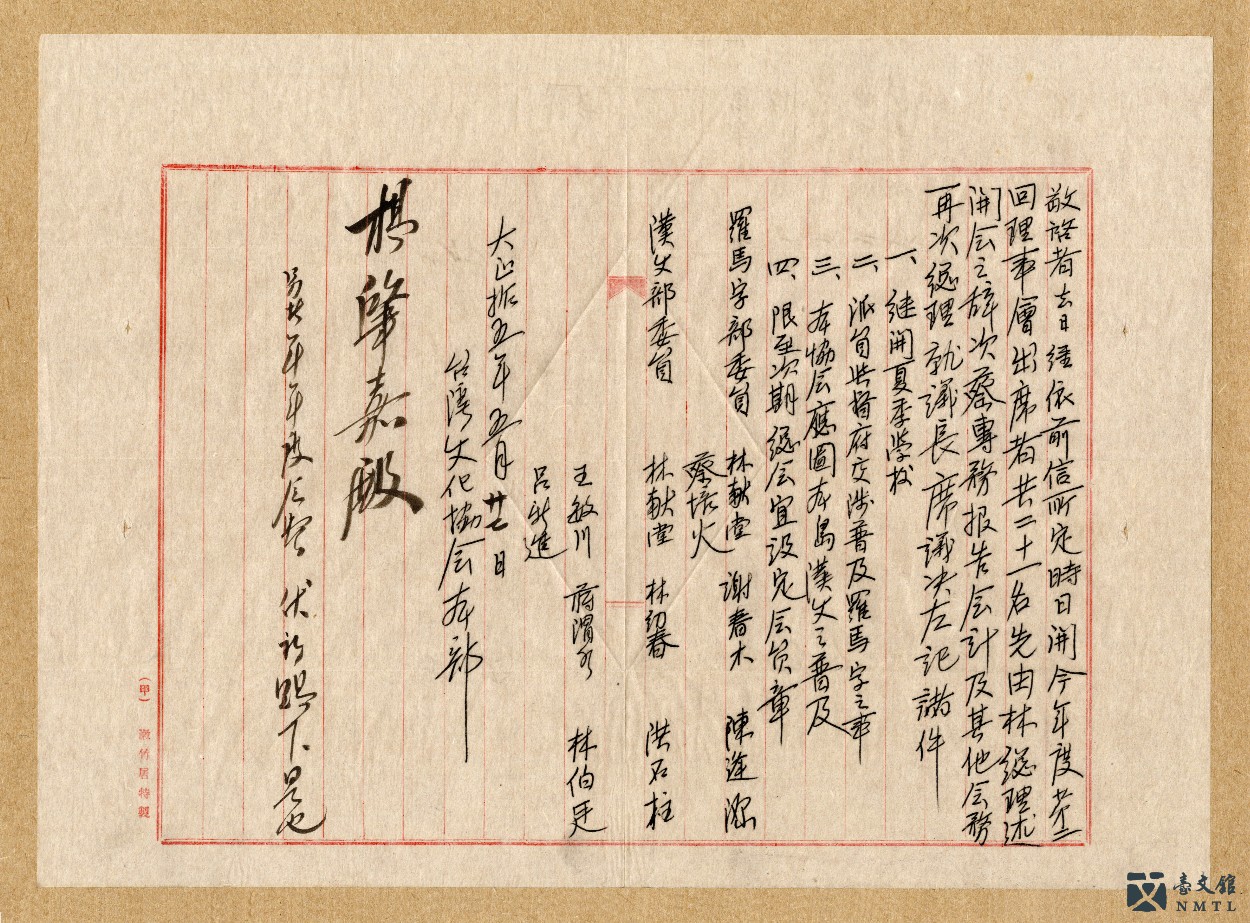 敬啓者去日經依前信所定時日開今年度第二
回理事會出席者共二十一名先由林総理述
開会之辞次蔡專務报告会計及其他会務
再次総理就議長席議决左記諸件
一、継開夏季学校
二、派員与督府交涉普及羅馬字之事
三、本協会應圖本島漢文之普及
四、限至次期総会宜設定会員章
羅馬字部委員　林献堂　謝春木　陳逢源
蔡培火
漢文部委員　林献堂　林幼春　洪石柱
王敏川　蔣渭水　林伯廷
呂灵進
大正拾五年五月廿七日
台湾文化協会本部
楊肇嘉殿
年年度会 伏祈賜下是也
(甲) 漱竹居特製
臺文館
NMTL